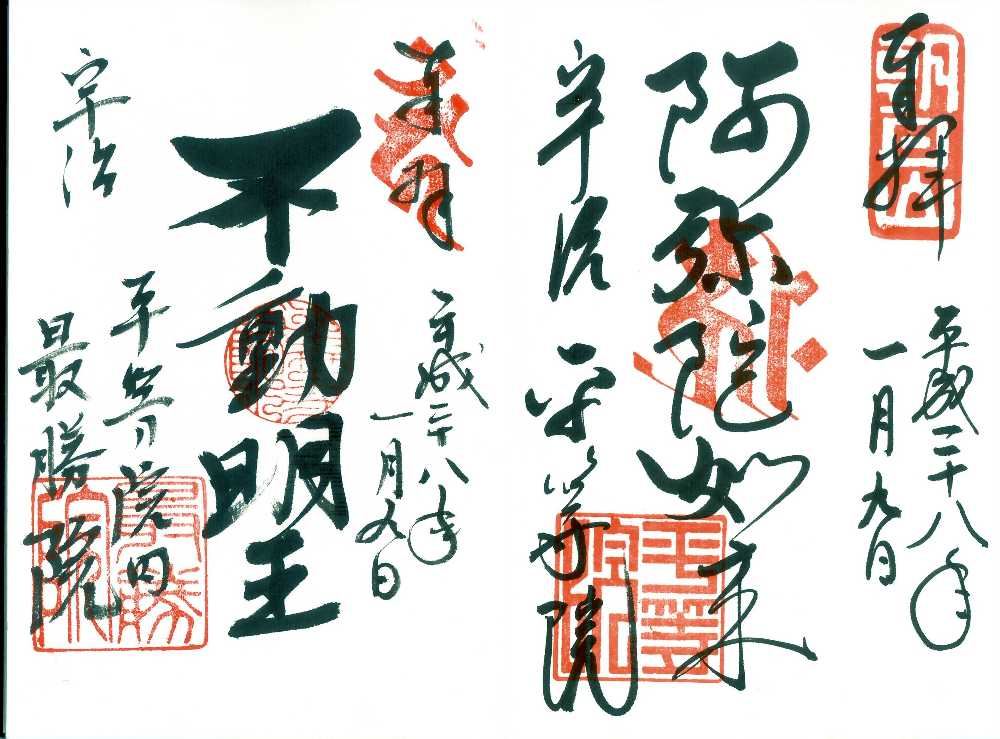 奉拝
平成二十八年
一月九日
阿弥陀如来
宇治 平等院
奉拝
平成二十八年
一月九日
不動明王
宇治
平等院内
最勝院